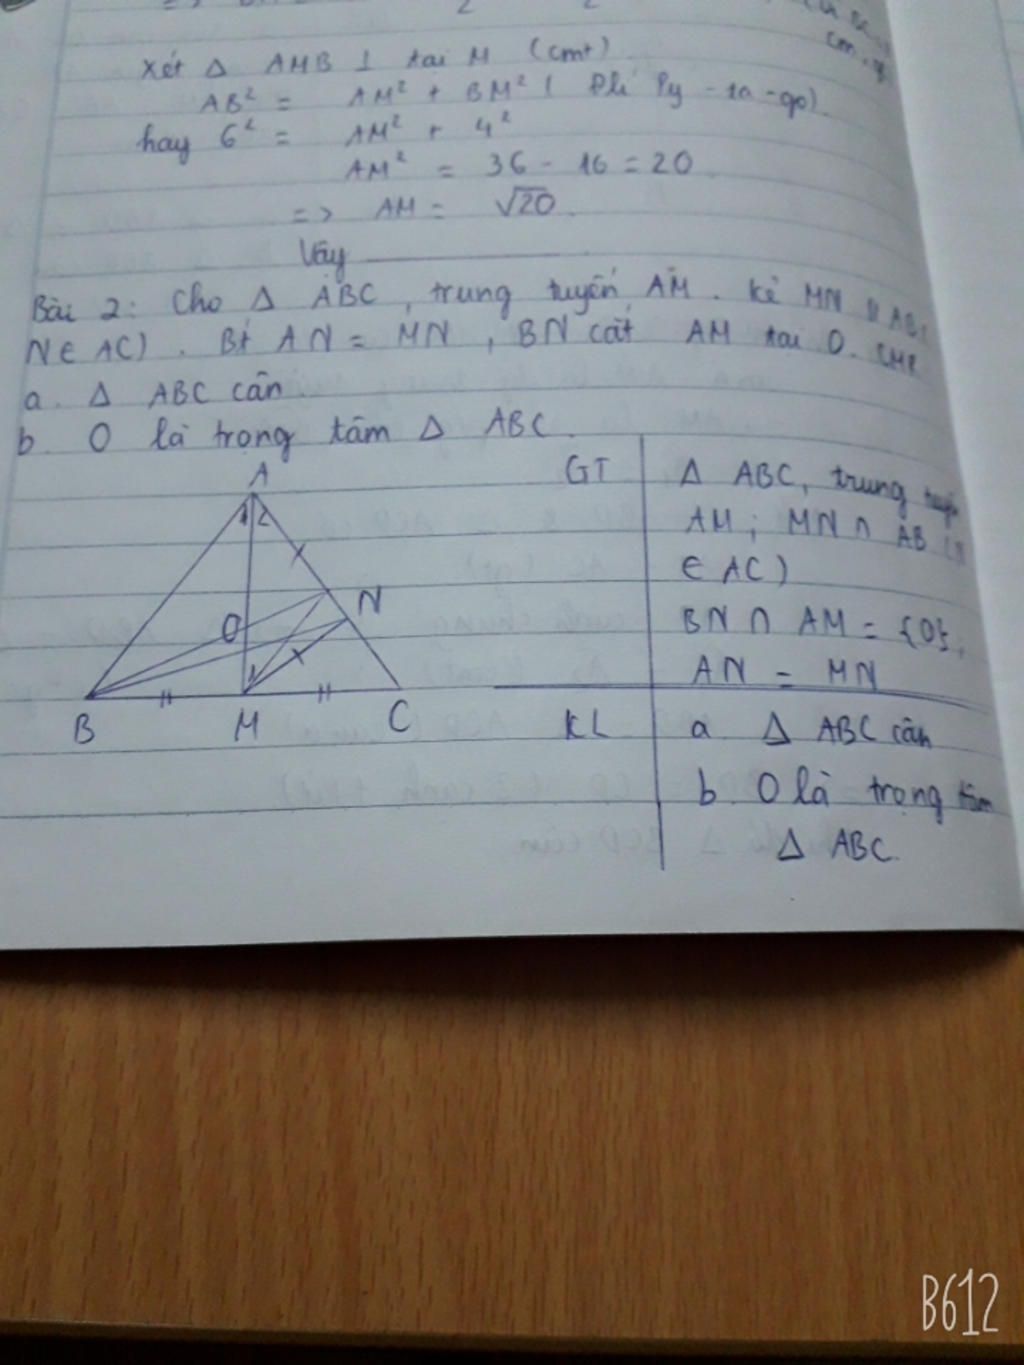 Xét Δ AMB ⊥ tại M (cmt)
AB² = AM² + BM² ( Đlí Py - ta - go)
hay 6² = AM² + 4²
AM² = 36 - 16 = 20
=> AM = √20
Vậy
Bài 2: Cho Δ ABC, trung tuyến AM. Kẻ MN // AB (
N ∈ AC). Bt AN = MN, BN cắt AM tại O. CMR
a. Δ ABC cân
b. O là trọng tâm Δ ABC.
A
1 2
N
O
1
B M C
GT
Δ ABC, trung tuyến
AM; MN ∩ AB (N
∈ AC)
BN ∩ AM = {O};
AN = MN
KL
a. Δ ABC cân
b. O là trọng tâm
Δ ABC.
B612